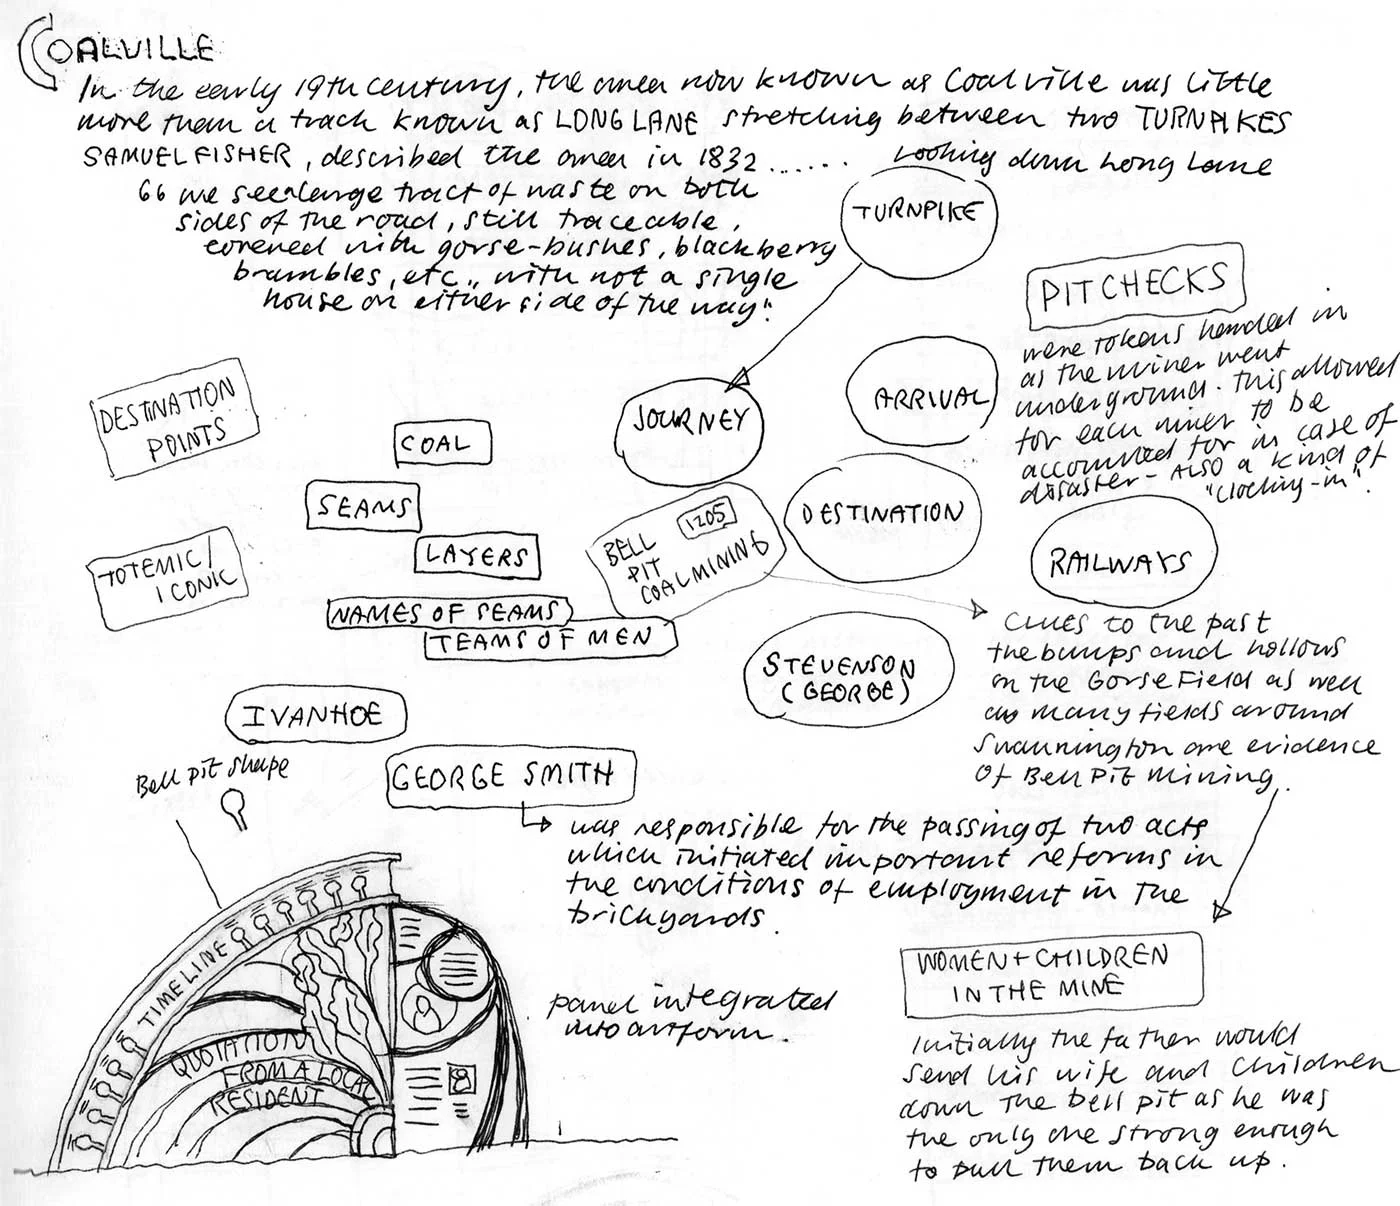 COALVILLE
In the early 19th century, the area now known as Coalville was little
more than a track known as LONG LANE stretching between two TURNPIKES
SAMUEL FISHER, described the area in 1832 ...... Looking down Long Lane
66 we see large tract of waste on both
sides of the road, still traceable,
covered with gorse-bushes, blackberry
brambles, etc., with not a single
house on either side of the way".
TURNPIKE
PIT CHECKS
were tokens handed in
as the miner went
underground. This allowed
for each miner to be
accounted for in case of
disaster - ALSO a kind of
"clocking-in".
DESTINATION
POINTS
COAL
JOURNEY
ARRIVAL
SEAMS
LAYERS
1205
BELL
PIT
COALMINING
DESTINATION
RAILWAYS
TOTEMIC/
ICONIC
NAMES OF SEAMS
TEAMS OF MEN
STEVENSON
(GEORGE)
Clues to the past
the bumps and hollows
on the Gorse Field as well
as many fields around
Swannington are evidence
of Bell Pit Mining.
IVANHOE
Bell pit shape
GEORGE SMITH
was responsible for the passing of two acts
which initiated important reforms in
the conditions of employment in the
brickyards.
TIMELINE
QUOTATION
FROM A LOCAL
RESIDENT
panel integrated
into artform.
WOMEN + CHILDREN
IN THE MINE
Initially the father would
send his wife and children
down the bell pit as he was
the only one strong enough
to pull them back up.